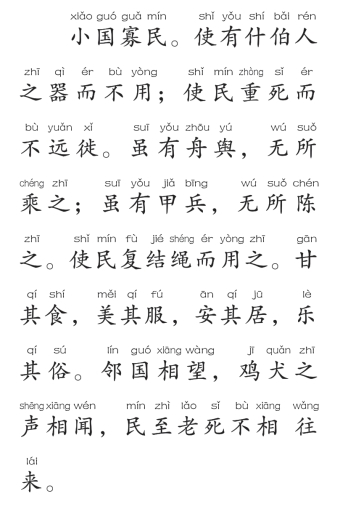 xiǎo guó guǎ mín shǐ yǒu shí bǎi rén
小国寡民。使有什伯人
zhī qì ér bù yòng shǐ mín zhòng sǐ ér
之器而不用；使民重死而
bù yuǎn xǐ suī yǒu zhōu yú wú suǒ
不远徙。虽有舟舆，无所
chéng zhī suī yǒu jiǎ bīng wú suǒ chén
乘之；虽有甲兵，无所陈
zhī shǐ mín fù jié shéng ér yòng zhī gān
之。使民复结绳而用之。甘
qí shí měi qí fú ān qí jū lè
其食，美其服，安其居，乐
qí sú lín guó xiāng wàng jī quǎn zhī
其俗。邻国相望，鸡犬之
shēng xiāng wén mín zhì lǎo sǐ bù xiāng wǎng
声相闻，民至老死不相往
lái
来。